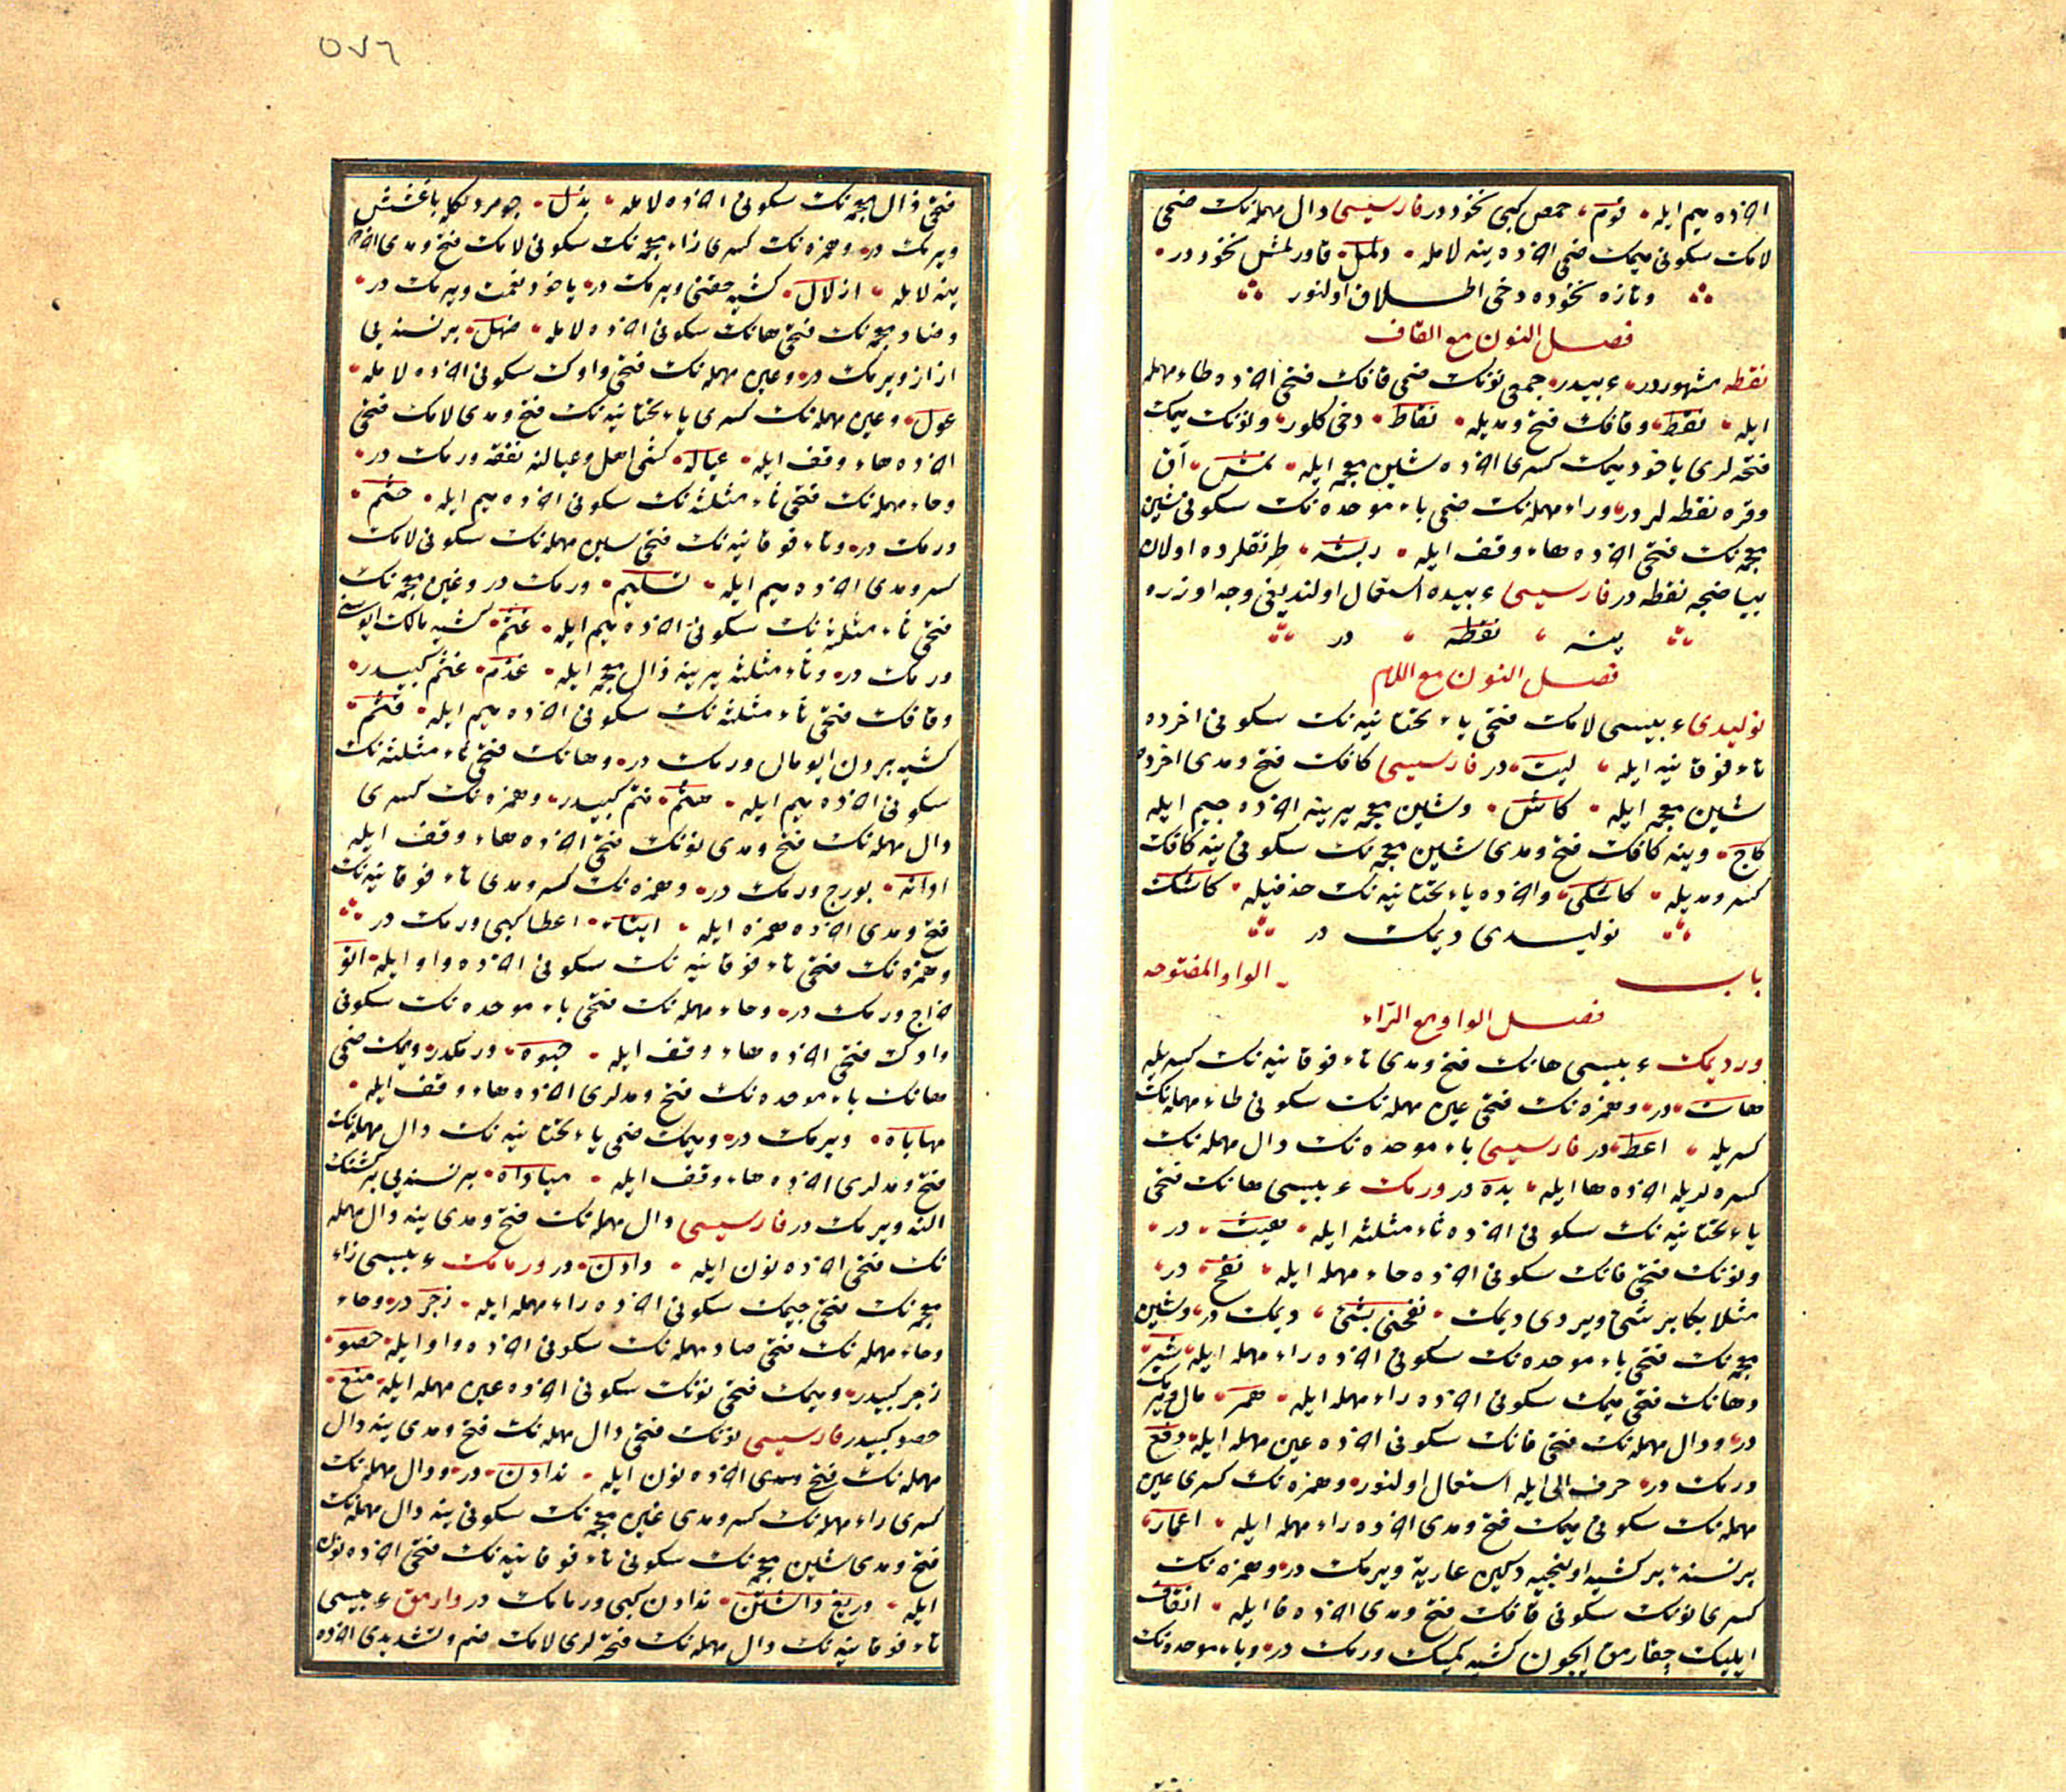 اخرده میم ایله فوم حمص كبی نخوددر فارسیسی دال مهمله‌نك ضمی
لامك سكونی میمك ضمی اخرده ینه لامله دلمل قاورلمش نخوددر
وتازه نخوده دخی اطلاق اولنور
فصل النون مع القاف
نقطه مشهوردر عربیدر جمعی نونك ضمی قافك فتحی اخرده طاء مهمله
ایله نقط وقافك فتح ومدیله نقاط دخی كلور ونونك میمك
فتحه‌لری یاخود میمك كسری اخرده شین معجمه ایله نمش آق
وقره نقطه‌لردر وراء مهمله‌نك ضمی باء موحده‌نك سكونی شین
معجمه‌نك فتحی اخرده هاء وقف ایله ربشه طرنقلرده اولان
بیاضجه نقطه در فارسیسی عربیده استعمال اولندیغی وجه اوزره
ینه نقطه در
فصل النون مع اللام
نولیدی عربیسی لامك فتحی یاء تحتانیه‌نك سكونی اخرده
تاء فوقانیه ایله لیت در فارسیسی كافك فتح ومدی اخرده
شین معجمه ایله كاش وشین معجمه یرینه اخرده جیم ایله
كاج وینه كافك فتح ومدی شین معجمه‌نك سكونی ینه كافك
كسر ومدیله كاشكی واخرده یاء تحتانیه‌نك حذفیله كاشك
نولیدی دیمك در
باب الواو المفتوحه
فصل الواو مع الراء
ورد یمك عربیسی هانك فتح ومدی تاء فوقانیه‌نك كسریله
هات در وهمزه‌نك فتحی عین مهمله‌نك سكونی طاء مهمله‌نك
كسریله اعط در فارسیسی باء موحده‌نك دال مهمله‌نك
كسره‌لریله اخرده ها ایله بده در ورمك عربیسی هانك فتحی
یاء تحتانیه‌نك سكونی اخرده ثاء مثلثه ایله هیث در
ونونك فتحی فانك سكونی اخرده حاء مهمله ایله نفح در
مثلا بكا بر شئ ویردی دیمك نفحنی بشئ دیمك در وشین
معجمه‌نك فتحی باء موحده‌نك سكونی اخرده راء مهمله ایله شبر
وهانك فتحی میمك سكونی اخرده راء مهمله ایله همر مال ویرمك
در ودال مهمله‌نك فتحی فانك سكونی اخرده عین مهمله ایله دفع
ورمك در حرف الی ایله استعمال اولنور وهمزه‌نك كسری عین
مهمله‌نك سكونی میمك فتح ومدی اخرده راء مهمله ایله اعمار
بر نسنه بر كشیه اولنجیه دكین عاریة ویرمك در وهمزه‌نك
كسری نونك سكونی قافك فتح ومدی اخرده فا ایله انقاف
ایلیك چقارمق ایچون كشیه كمیك ورمك در وباء موحده‌نك
٥٧٦
فتحی ذال معجمه‌نك سكونی اخرده لامله بذل جومردلكله باغشش
ویرمك در وهمزه‌نك كسری زاء معجمه‌نك سكونی لامك فتح ومدی اخرده
ینه لامله ازلال كشیه حقنی ویرمك در یاخود نعمت ویرمك در
وضاد معجمه‌نك فتحی هانك سكونی اخرده لامله ضهل بر نسنه‌یی
از از ویرمك در وعین مهمله‌نك فتحی واوك سكونی اخرده لامله
عول وعین مهمله‌نك كسری یاء تحتانیه‌نك فتح ومدی لامك فتحی
اخرده هاء وقف ایله عیاله كشی اهل وعیالنه نفقه ورمك در
وحاء مهمله‌نك فتحی ثاء مثلثه‌نك سكونی اخرده میم ایله حثم
ورمك در وتاء فوقانیه‌نك فتحی سین مهمله‌نك سكونی لامك
كسر ومدی اخرده میم ایله تسلیم ورمك در وغین معجمه‌نك
فتحی ثاء مثلثه‌نك سكونی اخرده میم ایله غثم كشیه مالك ایوسنی
ورمك در وثاء مثلثه یرینه ذال معجمه ایله غذم غثم كبیدر
وقافك فتحی ثاء مثلثه‌نك سكونی اخرده میم ایله قثم
كشیه بردن ایو مال ورمك در وهانك فتحی ثاء مثلثه‌نك
سكونی اخرده میم ایله هثم قثم كبیدر وهمزه‌نك كسری
دال مهمله‌نك فتح ومدی نونك فتحی اخرده هاء وقف ایله
ادانه بورج ورمك در وهمزه‌نك كسر ومدی تاء فوقانیه‌نك
فتح ومدی اخرده همزه ایله ایتاء اعطا كبی ورمك در
وهمزه‌نك فتحی تاء فوقانیه‌نك سكونی اخرده واو ایله اتو
خراج ورمك در وحاء مهمله‌نك فتحی باء موحده‌نك سكونی
واوك فتحی اخرده هاء وقف ایله حبوه ورمكدر ومیمك ضمی
هانك باء موحده‌نك فتح ومدلری اخرده هاء وقف ایله
مهاباه ویرمك در ومیمك ضمی یاء تحتانیه‌نك دال مهمله‌نك
فتح ومدلری اخرده هاء وقف ایله میاداه بر نسنه‌یی بر كشنك
النه ویرمك در فارسیسی دال مهمله‌نك فتح ومدی ینه دال مهمله
نك فتحی اخرده نون ایله دادن در ورمامك عربیسی زاء
معجمه‌نك فتحی جیمك سكونی اخرده راء مهمله ایله زجر در وحاء
وحاء مهمله‌نك فتحی صاد مهمله‌نك سكونی اخرده واو ایله حصو
زجر كبیدر ومیمك فتحی نونك سكونی اخرده عین مهمله ایله منع
حصو كبیدر فارسیسی نونك فتحی دال مهمله‌نك فتح ومدی ینه دال
مهمله‌نك فتح ومدی اخرده نون ایله ندادن در ودال مهمله‌نك
كسری راء مهمله‌نك كسر ومدی غین معجمه‌نك سكونی ینه دال مهمله‌نك
فتح ومدی شین معجمه‌نك سكونی تاء فوقانیه‌نك فتحی اخرده نون
ایله دریغ داشتن ندادن كبی ورمامك در وارمق عربیسی
تاء فوقانیه‌نك دال مهمله‌نك فتحه‌لری لامك ضم وتشدیدی اخرده